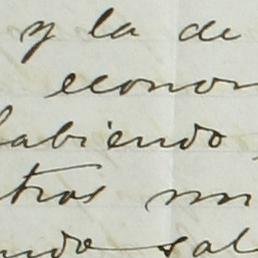 y la de
econom
habiendo
tros un
ndo sal